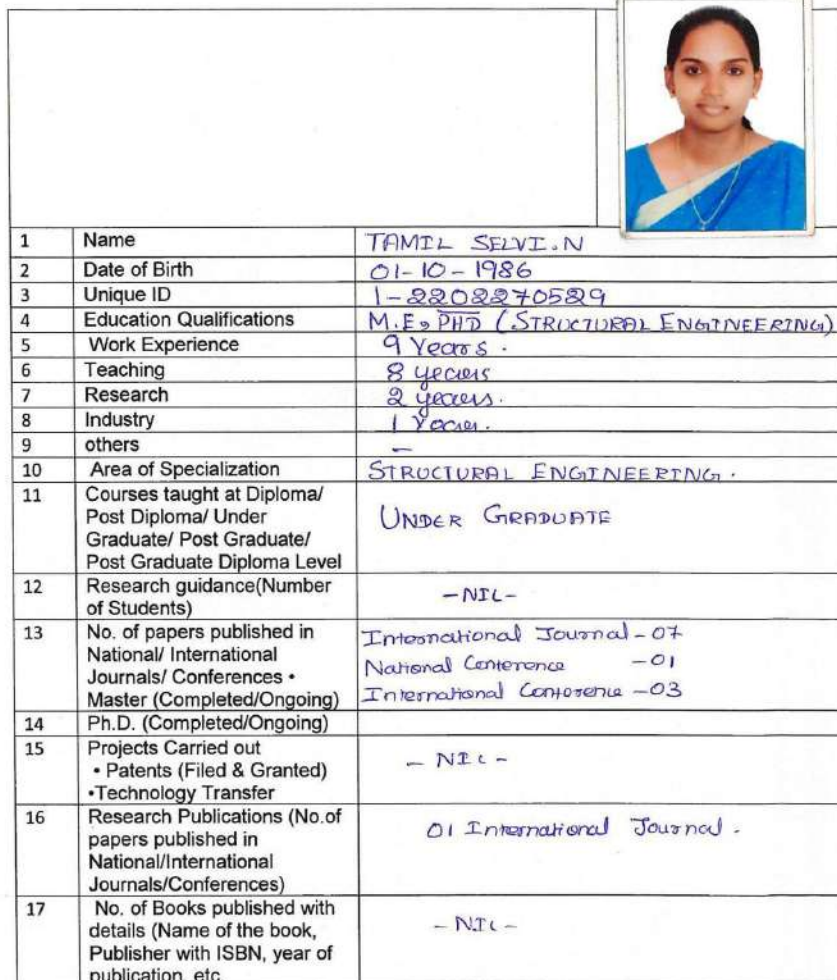 1 Name TAMIL SELVI.N
2 Date of Birth 01-10-1986
3 Unique ID 1-2202270529
4 Education Qualifications M.E, PHD (STRUCTURAL ENGINEERING)
5 Work Experience 9 Years.
6 Teaching 8 years
7 Research 2 years.
8 Industry 1 Year.
9 others –
10 Area of Specialization STRUCTURAL ENGINEERING.
11 Courses taught at Diploma/
Post Diploma/ Under
Graduate/ Post Graduate/
Post Graduate Diploma Level
UNDER GRADUATE
12 Research guidance(Number
of Students)
-NIL-
13 No. of papers published in
National/ International
Journals/ Conferences •
Master (Completed/Ongoing)
International Journal - 07
National Conference - 01
International Conference - 03
14 Ph.D. (Completed/Ongoing)
15 Projects Carried out
• Patents (Filed & Granted)
•Technology Transfer
- NIL -
16 Research Publications (No.of
papers published in
National/International
Journals/Conferences)
01 International Journal.
17 No. of Books published with
details (Name of the book,
Publisher with ISBN, year of
publication, etc
- NIL -